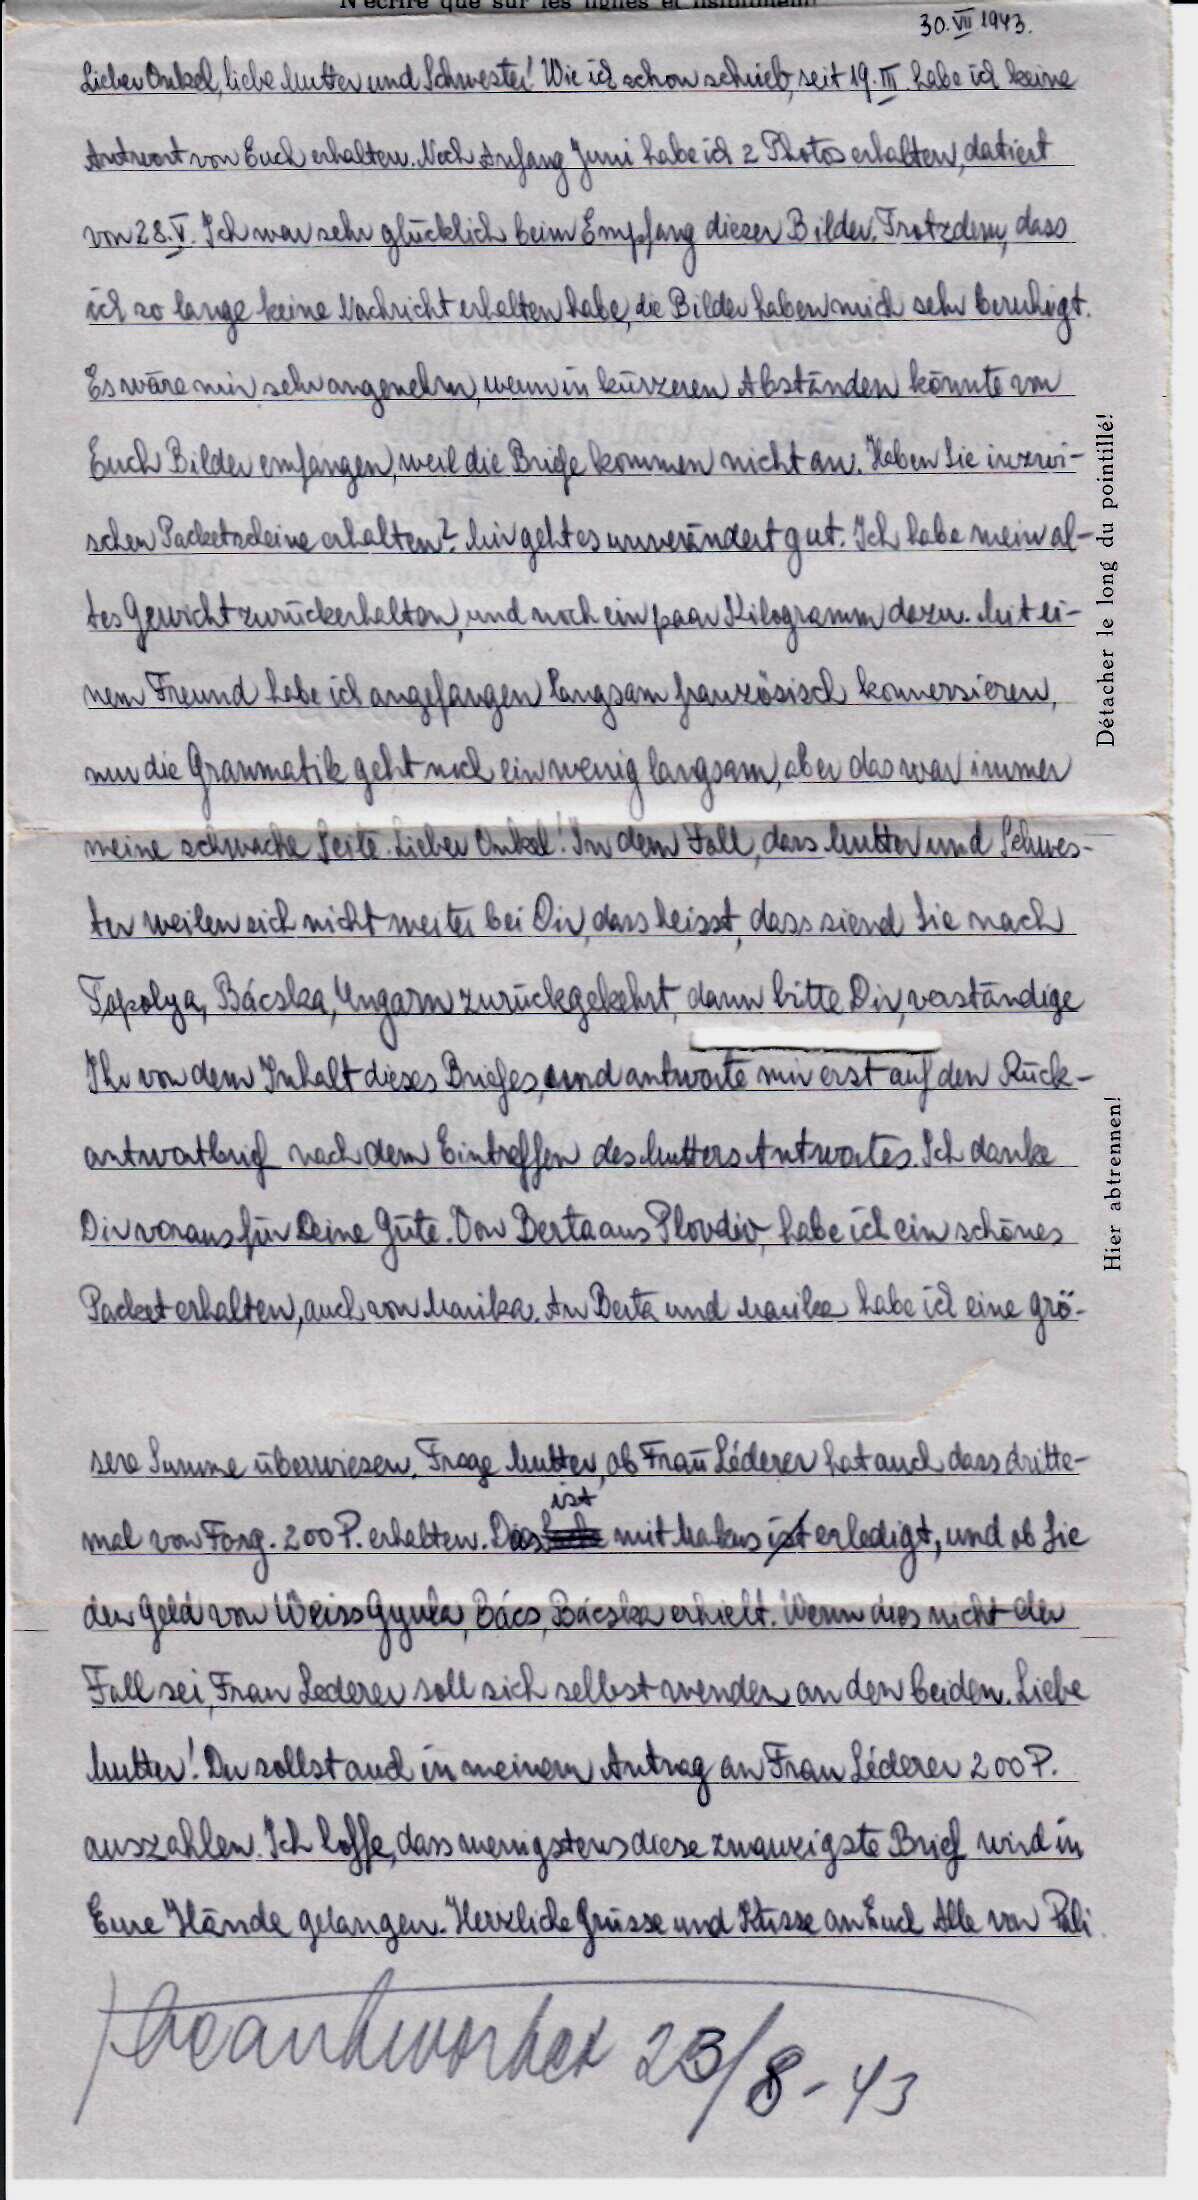 N'écrire que sur les lignes et lisiblement!
30.VII 1943.
Lieber Onkel, liebe Mutter und Schwester! Wie ich schon schrieb, seit 19.III. habe ich keine
Antwort von Euch erhalten. Noch Anfang Juni habe ich 2 Photos erhalten, datiert
von 28.V. Ich war sehr glücklich beim Empfang dieser Bilder. Trotzdem, dass
ich so lange keine Nachricht erhalten habe, die Bilder haben mich sehr beruhigt.
Es wäre mir sehr angenehm, wenn in kürzeren Abständen könnte von
Euch Bilder emfangen, weil die Briefe kommen nicht an. Haben Sie inzwi-
schen Packetscheine erhalten? Mir geht es unverändert gut. Ich habe mein al-
tes Gewicht zurückerhalten, und noch ein paar Kilogramm dazu. Mit ei-
nem Freund habe ich angefangen langsam französisch konversieren,
nur die Grammatik geht noch ein wenig langsam, aber das war immer
meine schwache Seite. Lieber Onkel! In dem Fall, dass Mutter und Schwes-
ter weilen sich nicht weiter bei Dir, dass heisst, dass siend Sie nach
Topolya, Bácska, Ungarn zurückgekehrt, dann bitte Dir, verständige
Ihr von dem Inhalt dieses Briefes, und antworte mir erst auf den Rück-
antwortbrief nach dem Eintreffen des Mutters Antwortes. Ich danke
Dir voraus für Deine Güte. Von Berta aus Plovdiv, habe ich ein schönes
Packet erhalten, auch von Marika. An Berta und Marika habe ich eine grö-
sere Summe überwiesen. Frage Mutter, ob Frau Léderer hat auch dass dritte-
mal von Forg. 200 P. erhalten. Das ist mit Markus ist erledigt, und ob Sie
der Geld von Weiss Gyula, Bács, Bácska erhielt. Wenn dies nicht der
Fall sei, Frau Lederer soll sich selbst wenden an den beiden. Liebe
Mutter! Du sollst auch in meinem Antrag an Frau Léderer 200 P.
auszahlen. Ich hoffe, dass wenigstens diese zwanzigste Brief wird in
Eure Hände gelangen. Herzliche Grüsse und Küsse an Euch Alle von Pali.
beantwortet 23/8-43
Détacher le long du pointillé!
Hier abtrennen!